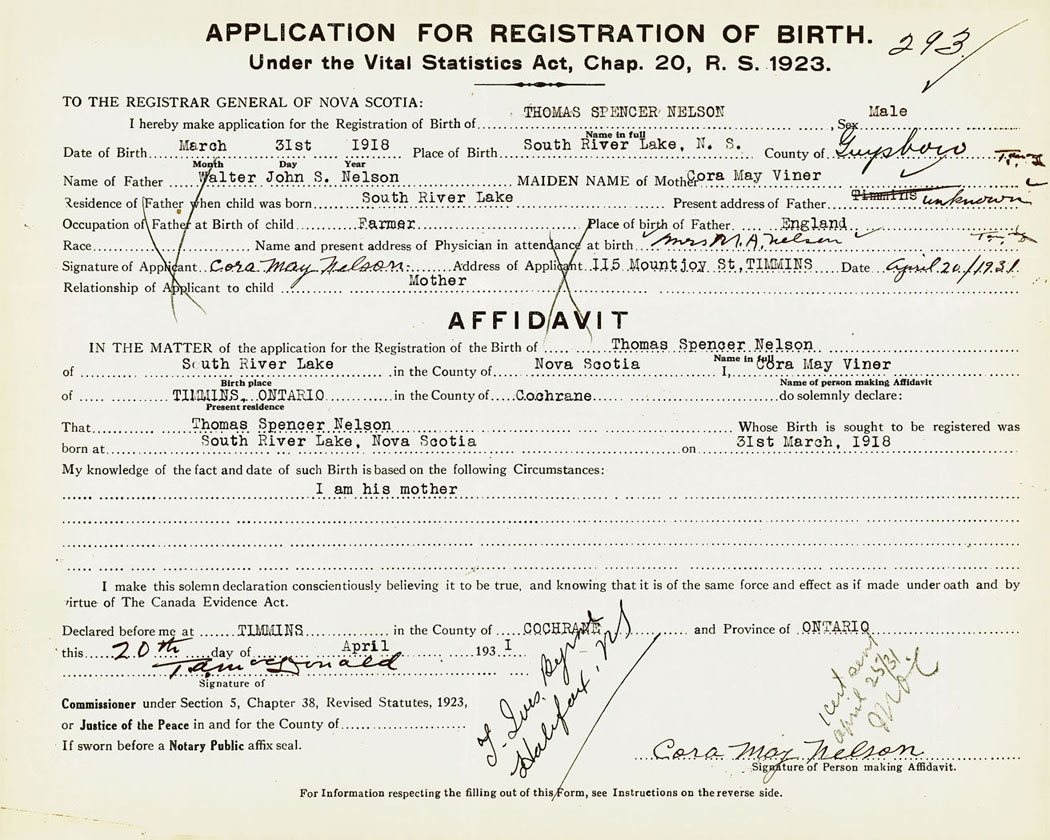 APPLICATION FOR REGISTRATION OF BIRTH. 293
Under the Vital Statistics Act, Chap. 20, R. S. 1923.
TO THE REGISTRAR GENERAL OF NOVA SCOTIA:
I hereby make application for the Registration of Birth of THOMAS SPENCER NELSON, Sex Male
Name in full
Date of Birth March 31st 1918 Place of Birth South River Lake, N. S. County of Guysboro
Month Day Year
Name of Father Walter John S. Nelson MAIDEN NAME of Mother Cora May Viner
Residence of Father when child was born South River Lake Present address of Father Timmins unknown
Occupation of Father at Birth of child Farmer Place of birth of Father England
Race Name and present address of Physician in attendance at birth Mrs M. A. Nelson
Signature of Applicant Cora May Nelson. Address of Applicant 115 Mountjoy St, TIMMINS Date April 20/1931.
Relationship of Applicant to child Mother
AFFIDAVIT
IN THE MATTER of the application for the Registration of the Birth of Thomas Spencer Nelson
Name in full
of South River Lake in the County of Nova Scotia I, Cora May Viner
Birth place Name of person making Affidavit
of TIMMINS, ONTARIO in the County of Cochrane do solemnly declare:
Present residence
That Thomas Spencer Nelson Whose Birth is sought to be registered was
born at South River Lake, Nova Scotia on 31st March, 1918
My knowledge of the fact and date of such Birth is based on the following Circumstances:
I am his mother
I make this solemn declaration conscientiously believing it to be true, and knowing that it is of the same force and effect as if made under oath and by
virtue of The Canada Evidence Act.
Declared before me at TIMMINS in the County of COCHRANE and Province of ONTARIO
this 20th day of April 1931
Signature of
Commissioner under Section 5, Chapter 38, Revised Statutes, 1923,
or Justice of the Peace in and for the County of
If sworn before a Notary Public affix seal.
Halifax, NS
april 25/31
Cora May Nelson
Signature of Person making Affidavit.
For Information respecting the filling out of this Form, see Instructions on the reverse side.